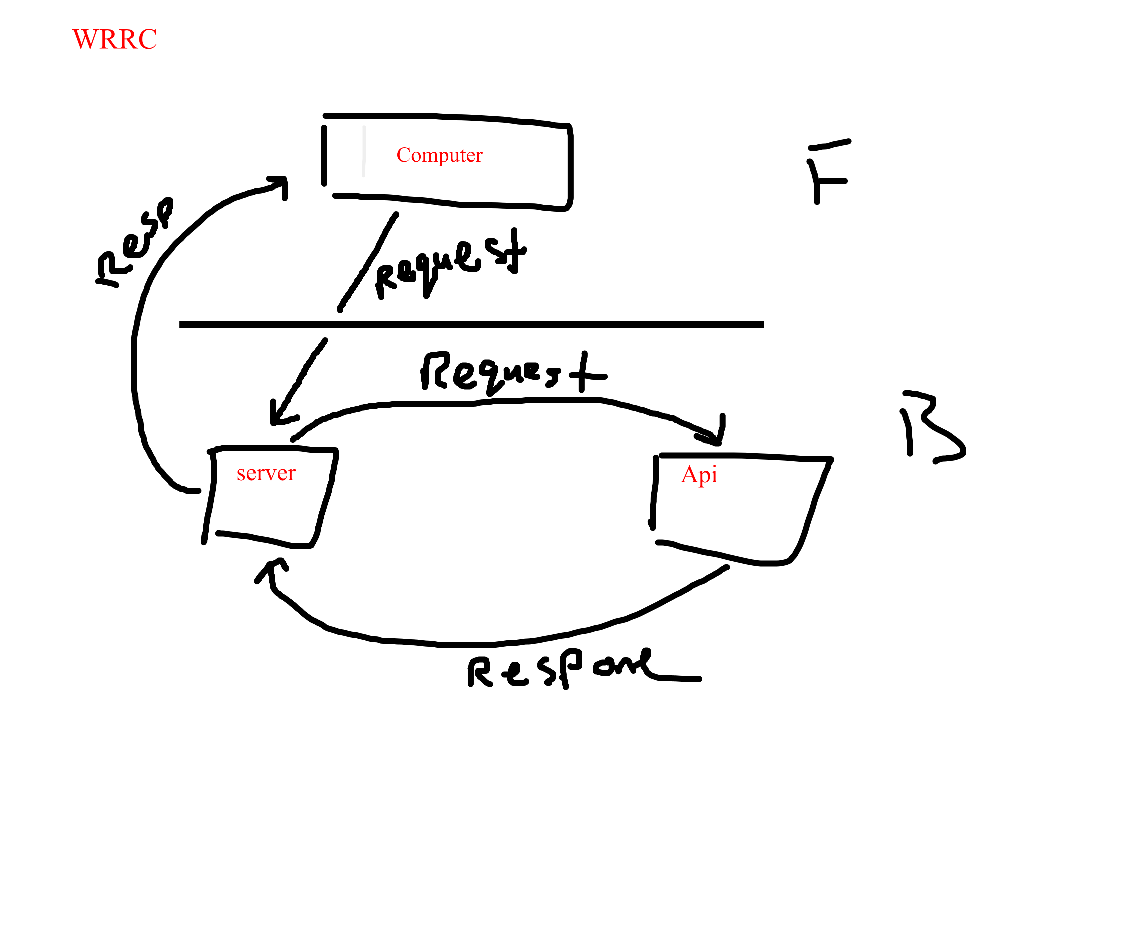 WRRC
Computer
F
Resp
Request
Request
B
server
Api
Response